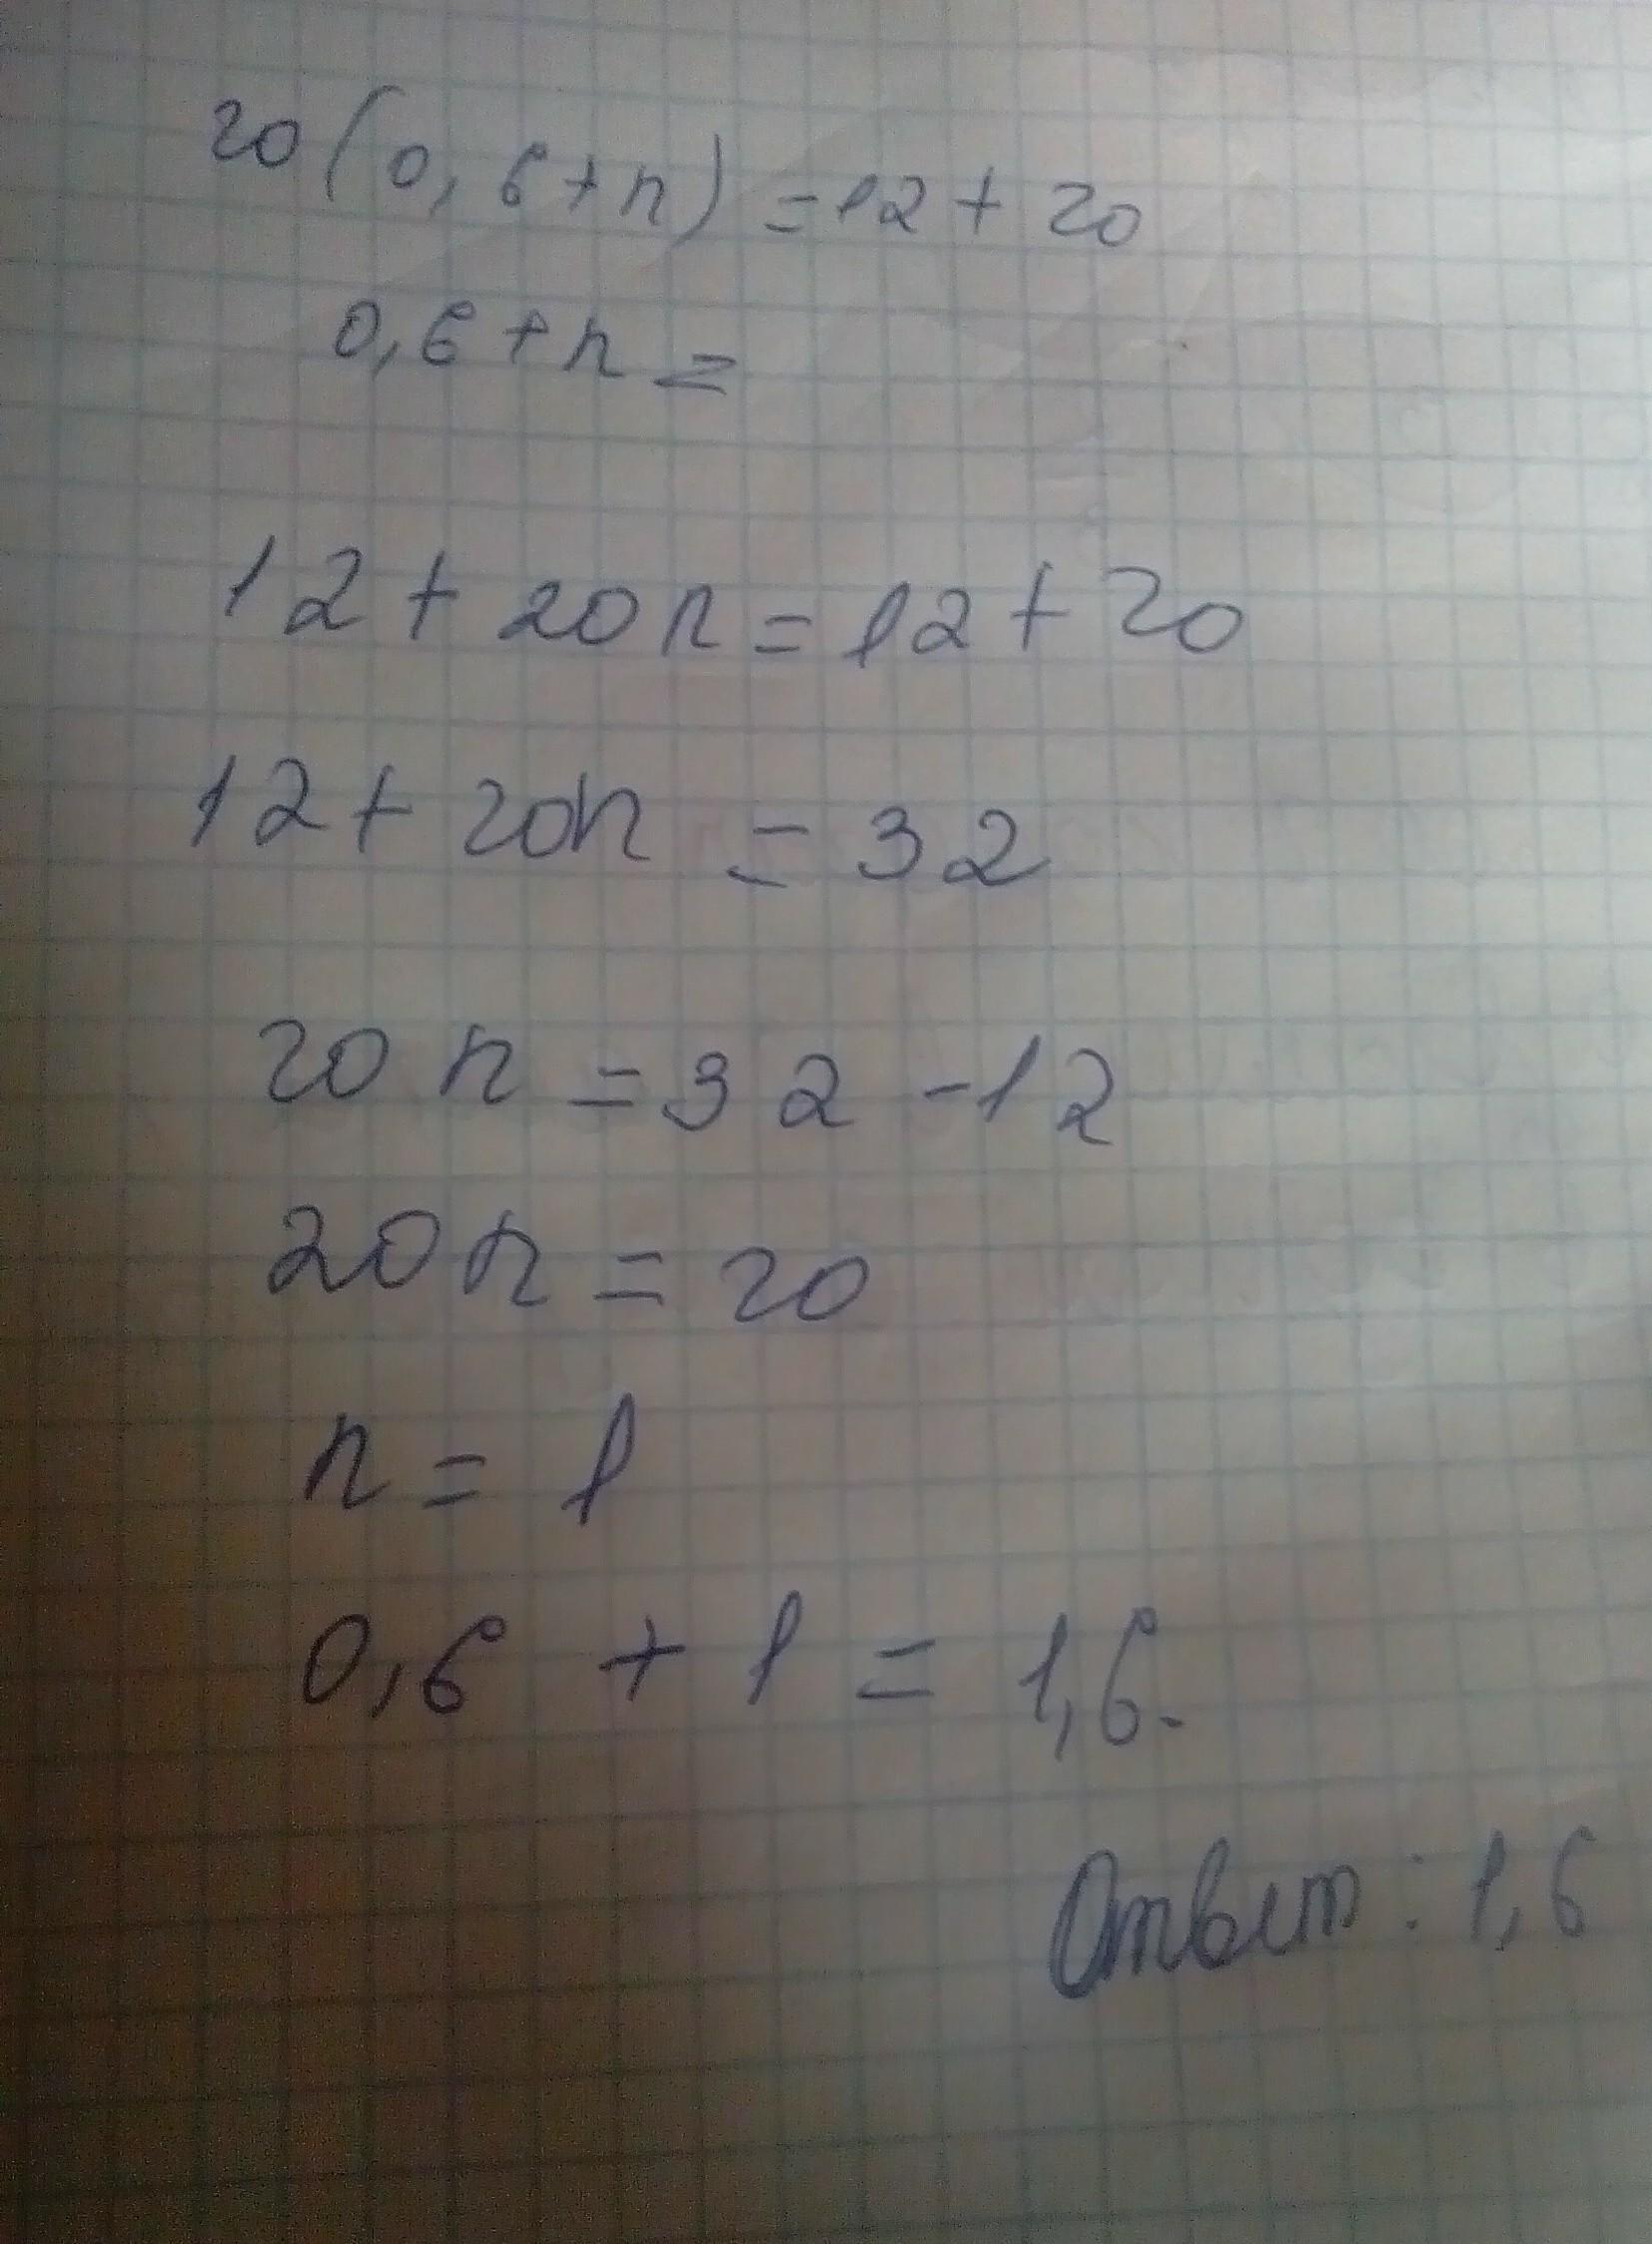 20(0,6+n)=12+20
0,6+n=
12+20n=12+20
12+20n=32
20n=32-12
20n=20
n=1
0,6+1=1,6.
Ответ: 1,6